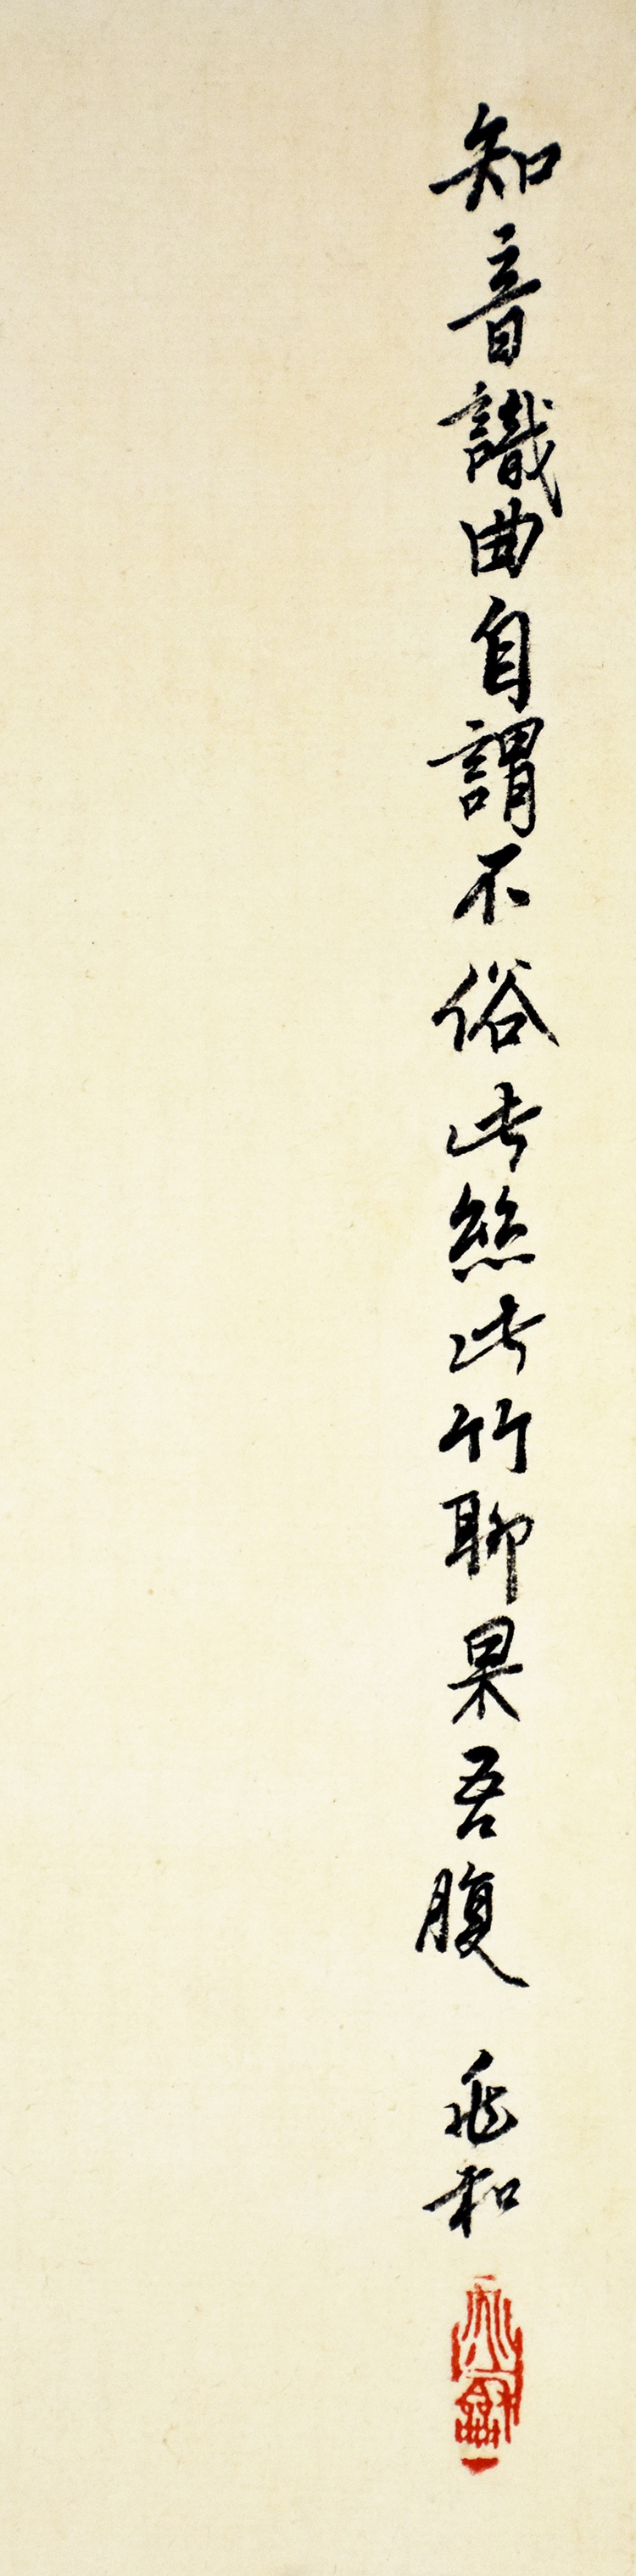 知音識曲自謂不俗此絲此竹聊果吾腹 兆和